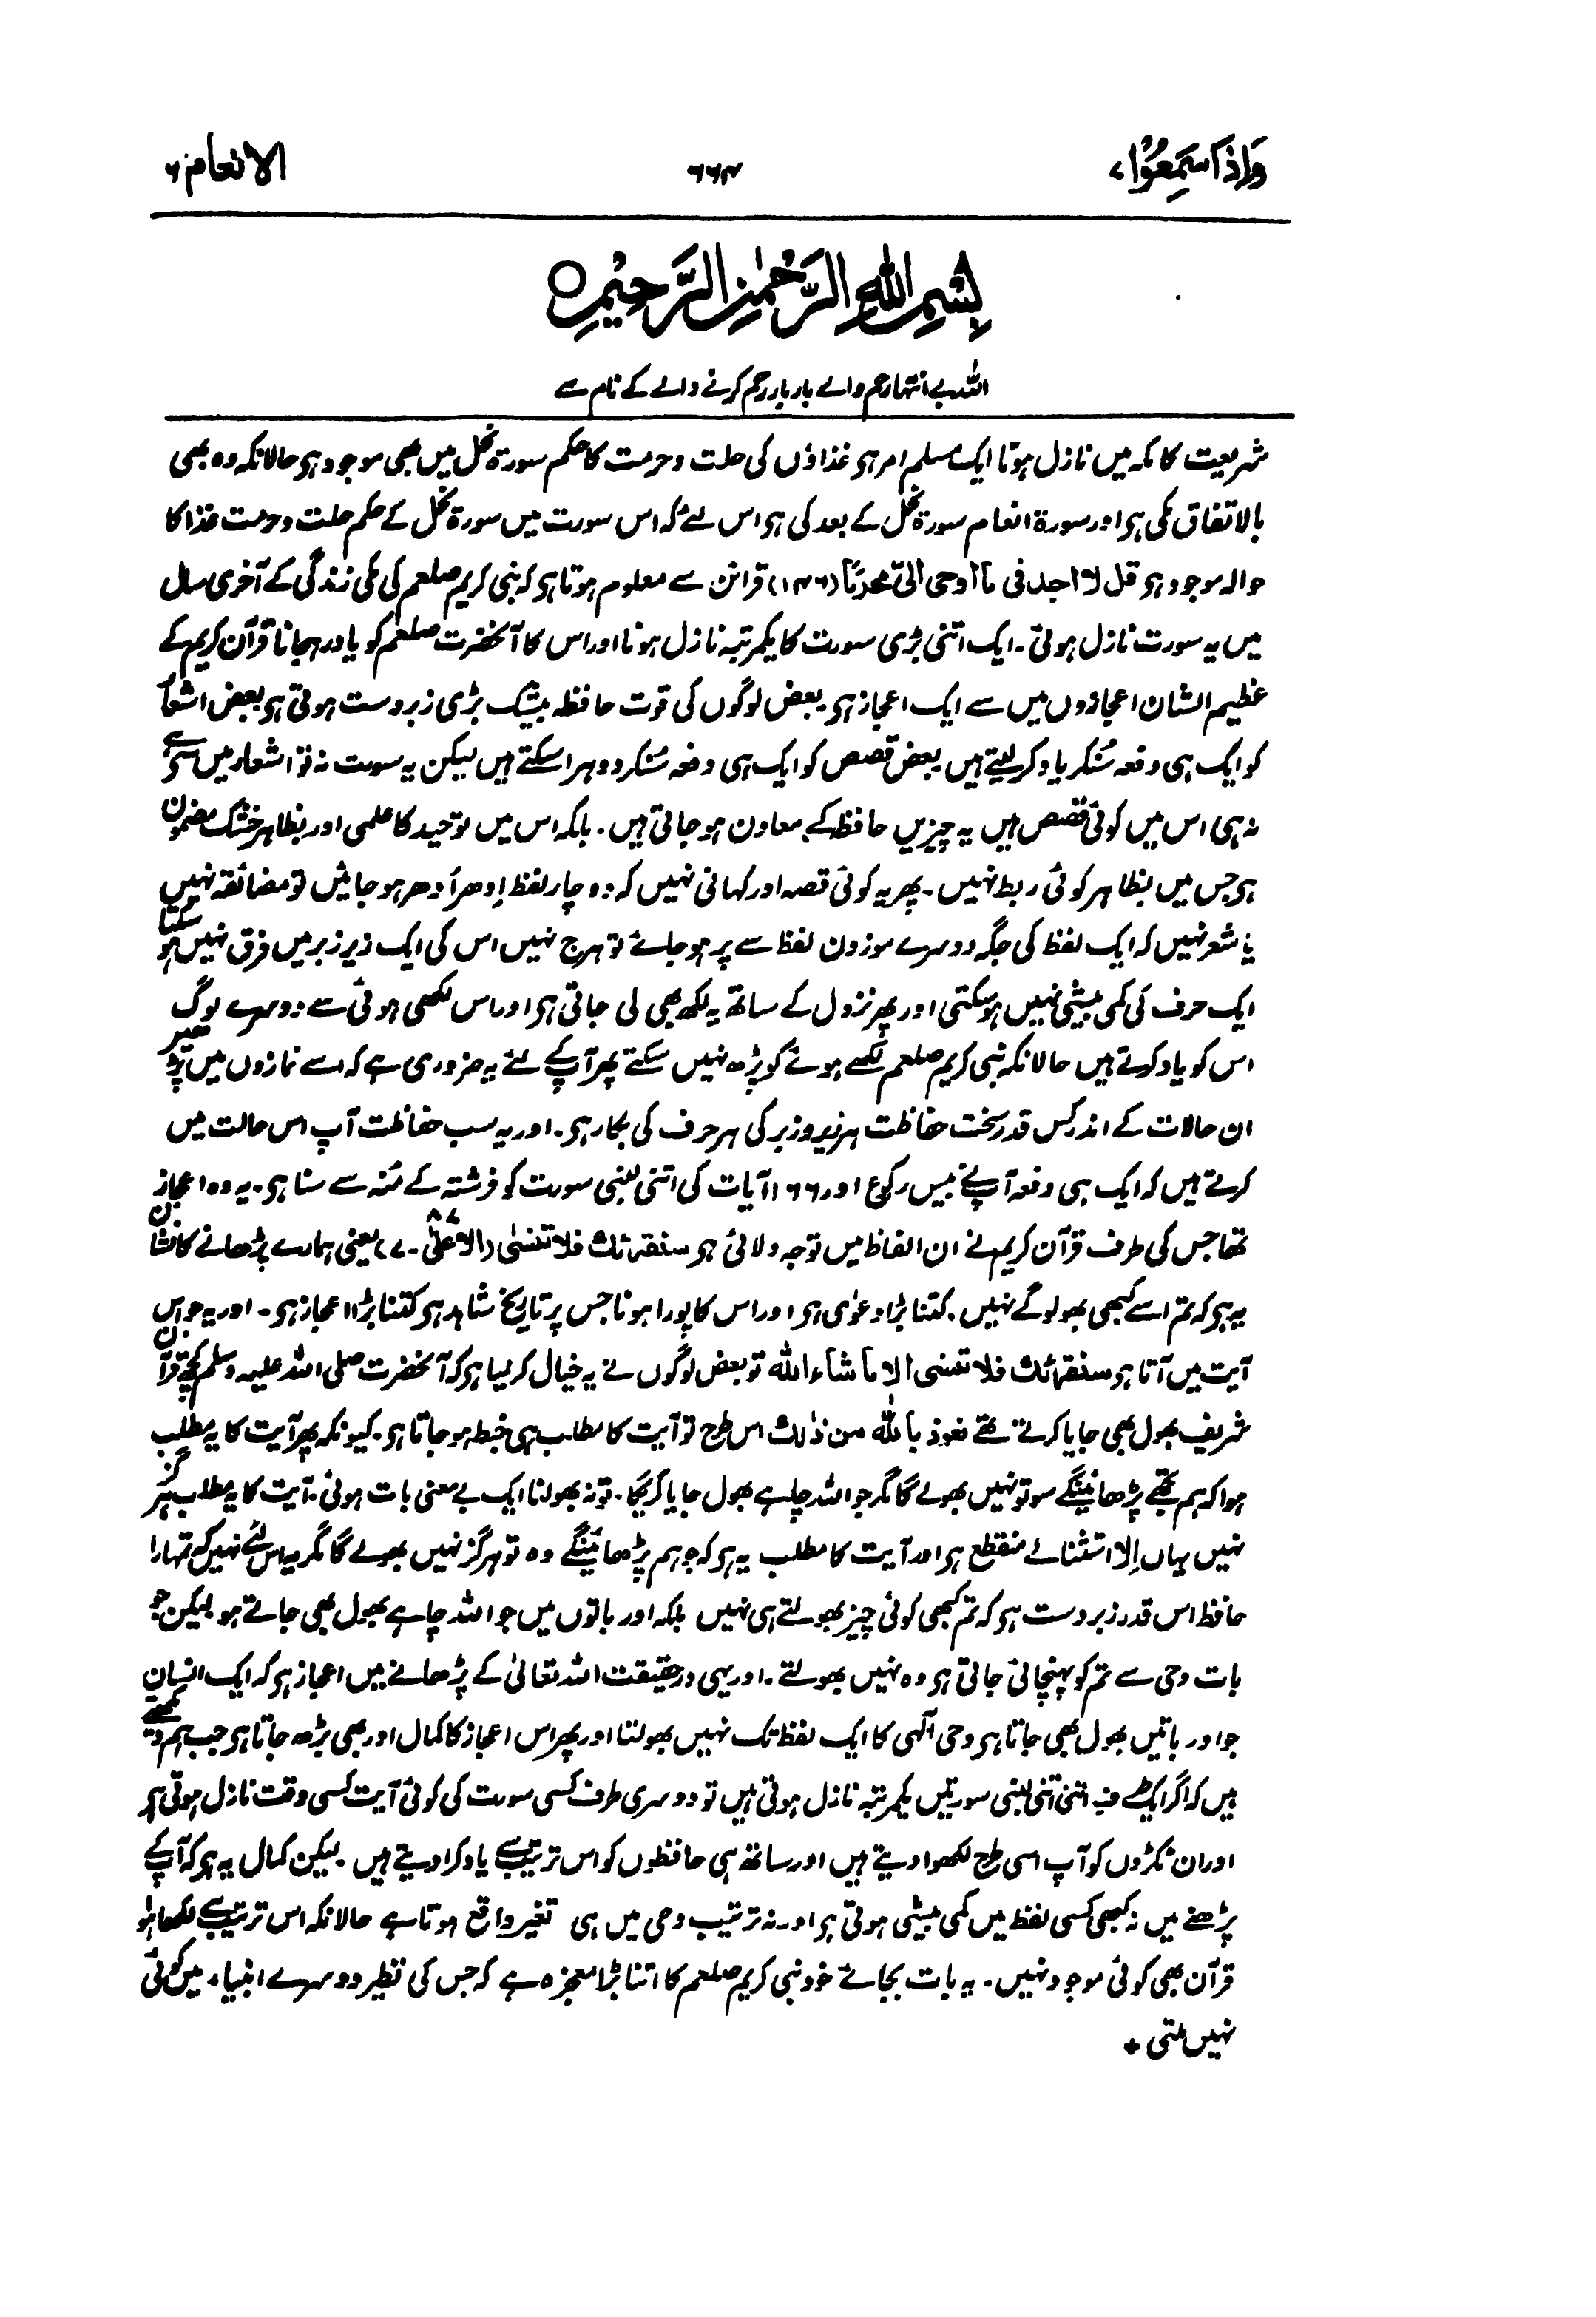 وَاِذَا سَمِعُوْا ۷
۶۶۴
الانعام ۶
بِسْمِ اللّٰهِ الرَّحْمٰنِ الرَّحِيْمِ ○
اللہ بے انتہا رحم والے بار بار رحم کرنے والے کے نام سے
شریعت کا مکہ میں نازل ہونا ایک مسلم امر ہی غذاؤں کی حلت وحرمت کا حکم سورۃ نحل میں بھی موجود ہی حالانکہ وہ بھی
بالاتفاق مکی ہی اور سورۃ انعام سورۃ نحل کے بعد کی ہی اس لئے کہ اس سورت میں سورۃ نحل کے حکم حلت وحرمت غذا کا
حوالہ موجود ہی قل لا اجد فی ما اوحی الیّ محرمًا (۱۴۶) قرائن سے معلوم ہوتا ہی کہ نبی کریم صلعم کی مکی زندگی کے آخری سال
میں یہ سورت نازل ہوئی۔ ایک اتنی بڑی سورت کا یکمرتبہ نازل ہونا اور اس کا آنحضرت صلعم کو یاد رہجانا قرآن کریم کے
عظیم الشان اعجازوں میں سے ایک اعجاز ہی۔ بعض لوگوں کی قوت حافظہ بیشک بڑی زبردست ہوتی ہی بعض اشعار
کو ایک ہی دفعہ سُنکر یاد کر لیتے ہیں بعض قصص کو ایک ہی دفعہ سُنکر دوہرا سکتے ہیں لیکن یہ سورت نہ تو اشعار میں سے ہی
نہ ہی اس میں کوئی قصص ہیں یہ چیزیں حافظہ کے معاون ہو جاتی ہیں۔ بلکہ اس میں توحید کا علمی اور بظاہر خشک مضمون
ہی جس میں بظاہر کوئی ربط نہیں۔ پھر یہ کوئی قصہ اور کہانی نہیں کہ دو چار لفظ اِدھر اُدھر ہو جائیں تو مضائقہ نہیں
یا شعر نہیں کہ ایک لفظ کی جگہ دوسرے موزون لفظ سے پر ہو جائے تو ہرج نہیں اس کی ایک زیر زبر میں فرق نہیں ہو سکتا
ایک حرف کی کمی بیشی نہیں ہو سکتی اور پھر نزول کے ساتھ یہ لکھ بھی لی جاتی ہی اور اس لکھی ہوئی سے دوسرے لوگ
اس کو یاد کرتے ہیں حالانکہ نبی کریم صلعم لکھے ہوئے کو پڑھ نہیں سکتے پھر آپ کے لئے یہ ضروری ہے کہ اسے نمازوں میں پڑھیں
ان حالات کے اندر کس قدر سخت حفاظت ہر زیر و زبر کی ہر حرف کی بکار ہی۔ اور یہ سب حفاظت آپ اس حالت میں
کرتے ہیں کہ ایک ہی دفعہ آپ نے بیس رکوع اور ۱۶۶ آیات کی اتنی لنبی سورت کو فرشتہ کے مُنہ سے سنا ہی۔ یہ وہ اعجاز
تھا جس کی طرف قرآن کریم نے ان الفاظ میں توجہ دلائی ہی سنقرئك فلا تنسٰی (الاعلٰی ۸۷۔ ۷) یعنی ہمارے پڑھانے کا نشان
یہ ہی کہ تم اسے کبھی بھولوگے نہیں۔ کتنا بڑا دعوٰی ہی اور اس کا پورا ہونا جس پر تاریخ شاہد ہی کتنا بڑا اعجاز ہی۔ اور یہ جو اس
آیت میں آتا ہی سنقرئك فلا تنسی الا ما شاء الله تو بعض لوگوں نے یہ خیال کر لیا ہی کہ آنحضرت صلی اللہ علیہ وسلم کچھ قرآن
شریف بھول بھی جایا کرتے تھے نعوذ بالله من ذٰلك اس طرح تو آیت کا مطلب ہی خبط ہو جاتا ہی۔ کیونکہ پھر آیت کا یہ مطلب
ہوا کہ ہم تجھے پڑھائینگے سو تو نہیں بھولے گا مگر جو اللہ چاہے بھول جایا کریگا۔ تو نہ بھولنا ایک بے معنی بات ہوئی۔ آیت کا یہ مطلب ہرگز
نہیں یہاں اِلا استثنائے منقطع ہی اور آیت کا مطلب یہ ہی کہ جو ہم پڑھائینگے وہ تو ہرگز نہیں بھولے گا مگر یہ اس لئے نہیں کہ تمہارا
حافظہ اس قدر زبردست ہی کہ تم کبھی کوئی چیز بھولتے ہی نہیں بلکہ اور باتوں میں جو اللہ چاہے بھول بھی جاتے ہو۔ لیکن جو
بات وحی سے تم کو پہنچائی جاتی ہی وہ نہیں بھولتے۔ اور یہی درحقیقت اللہ تعالیٰ کے پڑھانے میں اعجاز ہی کہ ایک انسان
جو اور باتیں بھول بھی جاتا ہی وحی الٰہی کا ایک لفظ تک نہیں بھولتا اور پھر اس اعجاز کا کمال اور بھی بڑھ جاتا ہی جب ہم دیکھتے
ہیں کہ اگر ایکطرف اتنی اتنی لنبی سورتیں یکمرتبہ نازل ہوتی ہیں تو دوسری طرف کسی سورت کی کوئی آیت کسی وقت نازل ہوتی ہی
اور ان ٹکڑوں کو آپ اسی طرح لکھوا دیتے ہیں اور ساتھ ہی حافظوں کو اس ترتیب سے یاد کرا دیتے ہیں۔ لیکن کمال یہ ہی کہ آپ کے
پڑھنے میں نہ کبھی کسی لفظ میں کمی بیشی ہوتی ہی اور نہ ترتیب وحی میں ہی تغیر واقع ہوتا ہے حالانکہ اس ترتیب سے لکھا ہوا
قرآن بھی کوئی موجود نہیں۔ یہ بات بجائے خود نبی کریم صلعم کا اتنا بڑا معجزہ ہے کہ جس کی نظیر دوسرے انبیاء میں کوئی
نہیں ملتی ٭